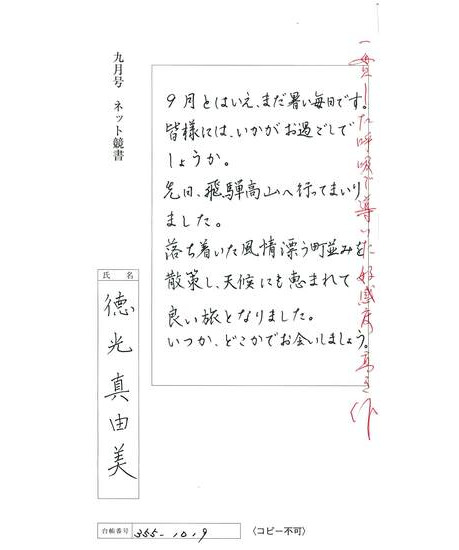 一貫した呼吸で導いた好感度高き作
九月号 ネット競書
9月とはいえ、まだ暑い毎日です。
皆様には、いかがお過ごしで
しょうか。
先日、飛騨高山へ行ってまいり
ました。
落ち着いた風情漂う町並みを
散策し、天候にも恵まれて
良い旅となりました。
いつか、どこかでお会いしましょう。
氏名
徳光真由美
台帳番号 355-10.9
〈コピー不可〉